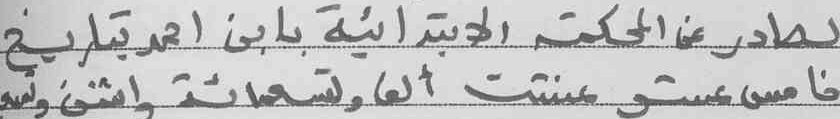 لصادر عن المحكمة الابتدائية بابن احمد بتاريخ
خامس عشر غشت ألف وتسعمائة واثنين وتسع